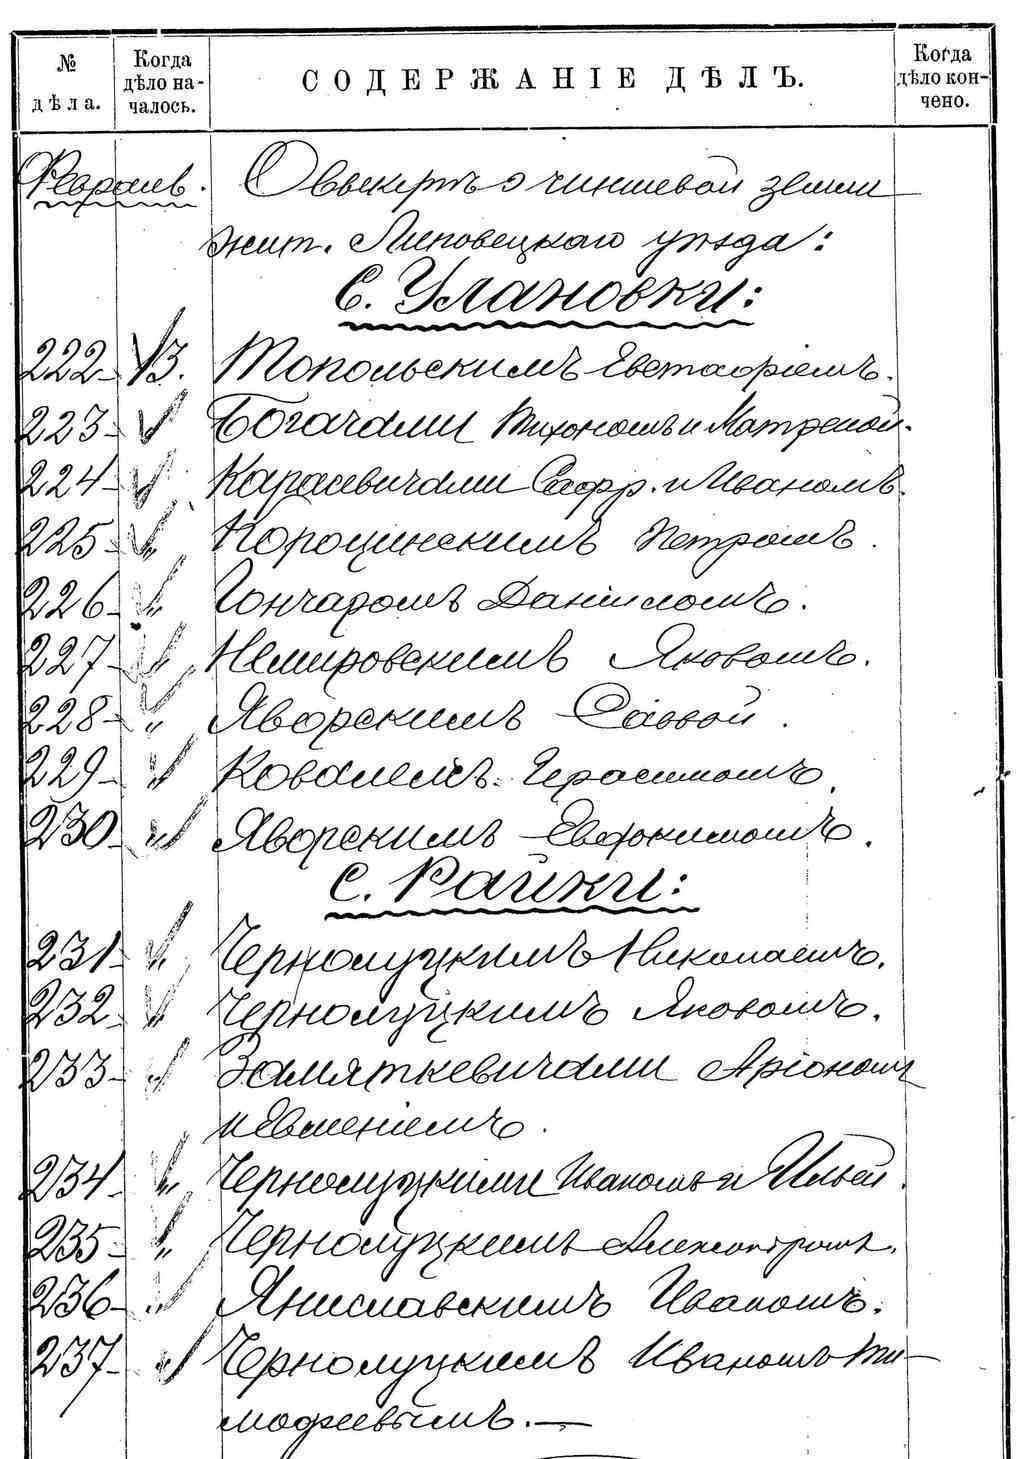 № дѣла.
Когда дѣло на-
чалось.
СОДЕРЖАНІЕ ДѢЛЪ.
Когда дѣло кон-
чено.
Феврал.
О выкупѣ чиншевой земли
жит. Липовецкаго уѣзда:
С. Улановки:
222 13. Топольскимъ Евстафіемъ.
223 Богачами Тихономъ и Матреной.
224 Карасевичами Сафр. и Иваномъ.
225 " Корочинскимъ Петромъ.
226 " Гончаромъ Даніиломъ.
227 " Немировскимъ Яковомъ.
228 " Яворскимъ Саввой.
229 " Ковалемъ Герасимомъ.
230 " Яворскимъ Евдокимомъ.
С. Райки:
231 " Чернолуцкимъ Николаемъ.
232 " Чернолуцкимъ Яковомъ.
233 " Замяткевичами Аріономъ
и Евменіемъ.
234 " Чернолуцкими Иваномъ и Ильей.
235 " Чернолуцкимъ Александромъ.
236 " Яниславскимъ Иваномъ.
237 " Чернолуцкимъ Иваномъ Ти-
мофеевымъ. —